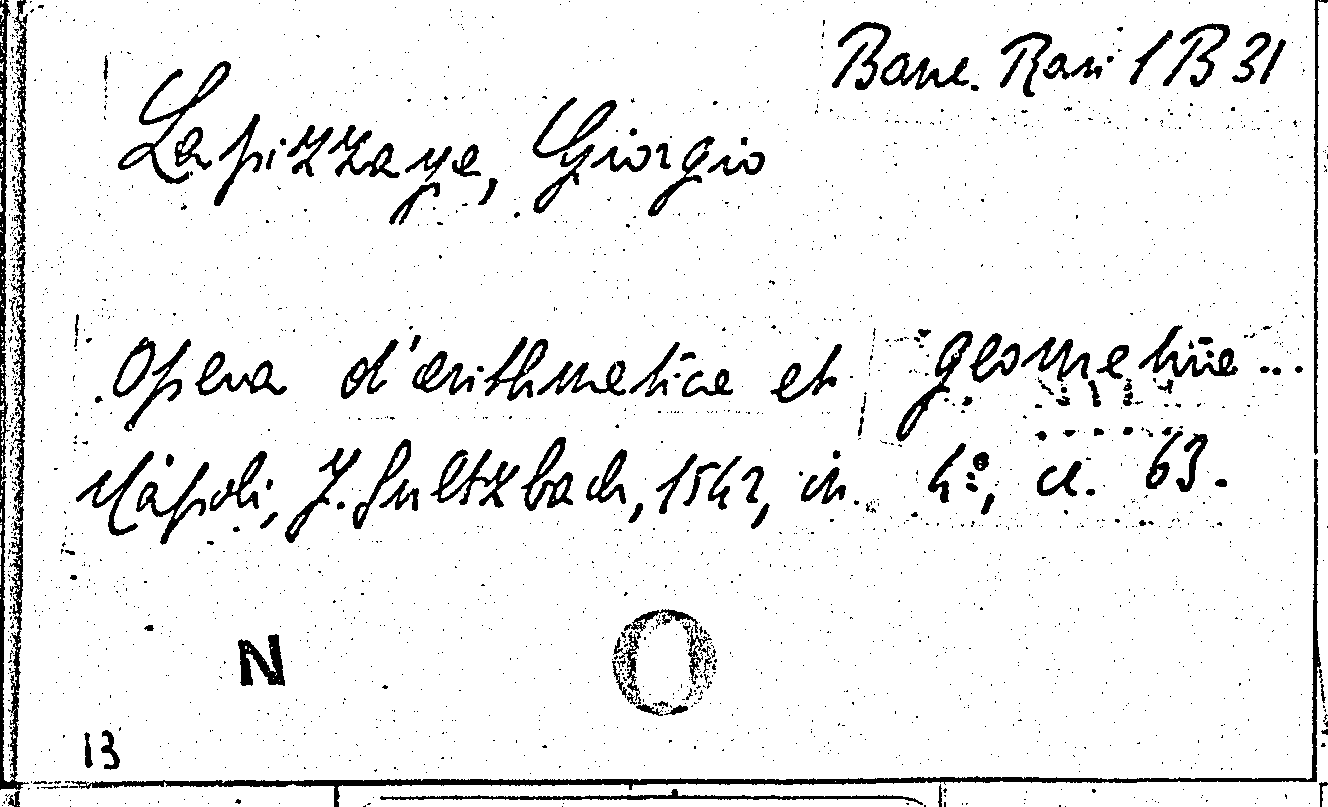 Banc. Rari 1 B 31
Lapizzaya, Giorgio
Opera d'arithmetica et geometria...
Napoli, J. Sultzbach, 1542, in 4º, cc. 63.
N O
13